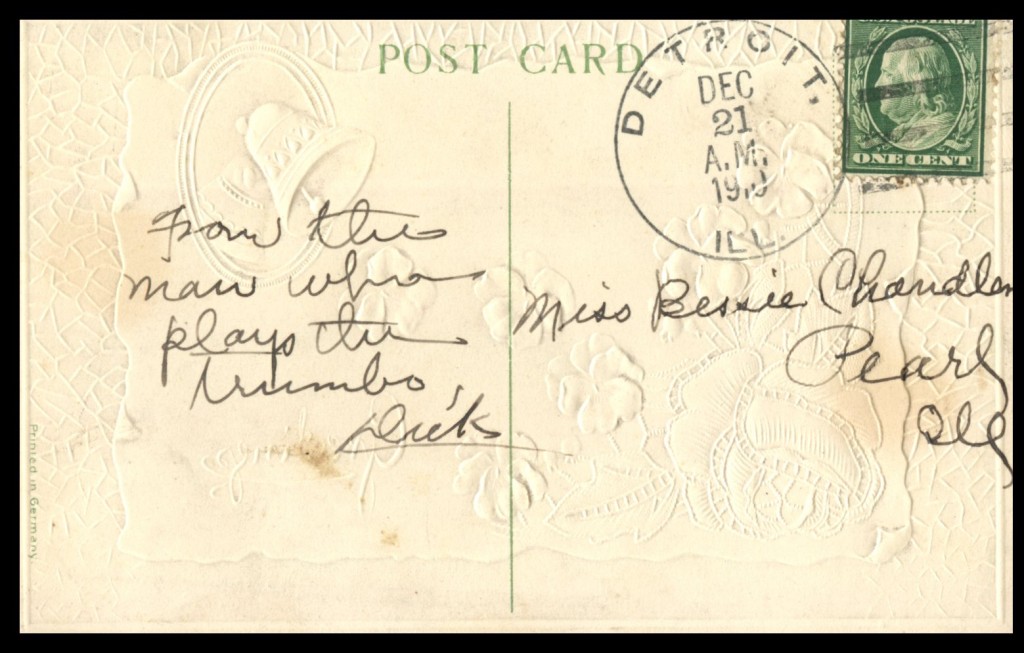 POST CARD
DETROIT,
DEC
21
A.M.
ILL.
ONE CENT
From the
man who
plays the
trumbo,
Dick
Miss Bessie Chandler
Pearl
Ill
Printed in Germany